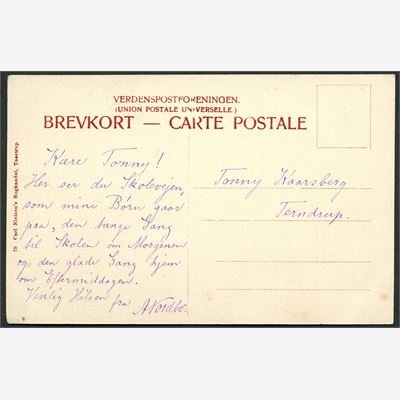 VERDENSPOSTFORENINGEN.
(UNION POSTALE UNIVERSELLE.)
BREVKORT — CARTE POSTALE
79 Carl Nielsen's Boghandel, Taastrup.
Kære Tonny!
Her ser du Skolevejen,
som mine Børn gaar
paa, den tunge Gang
til Skolen om Morgenen
og den glade Gang hjem
om Eftermiddagen.
Venlig Hilsen fra A Nordbo.
Tonny Kaarsberg
Terndrup.